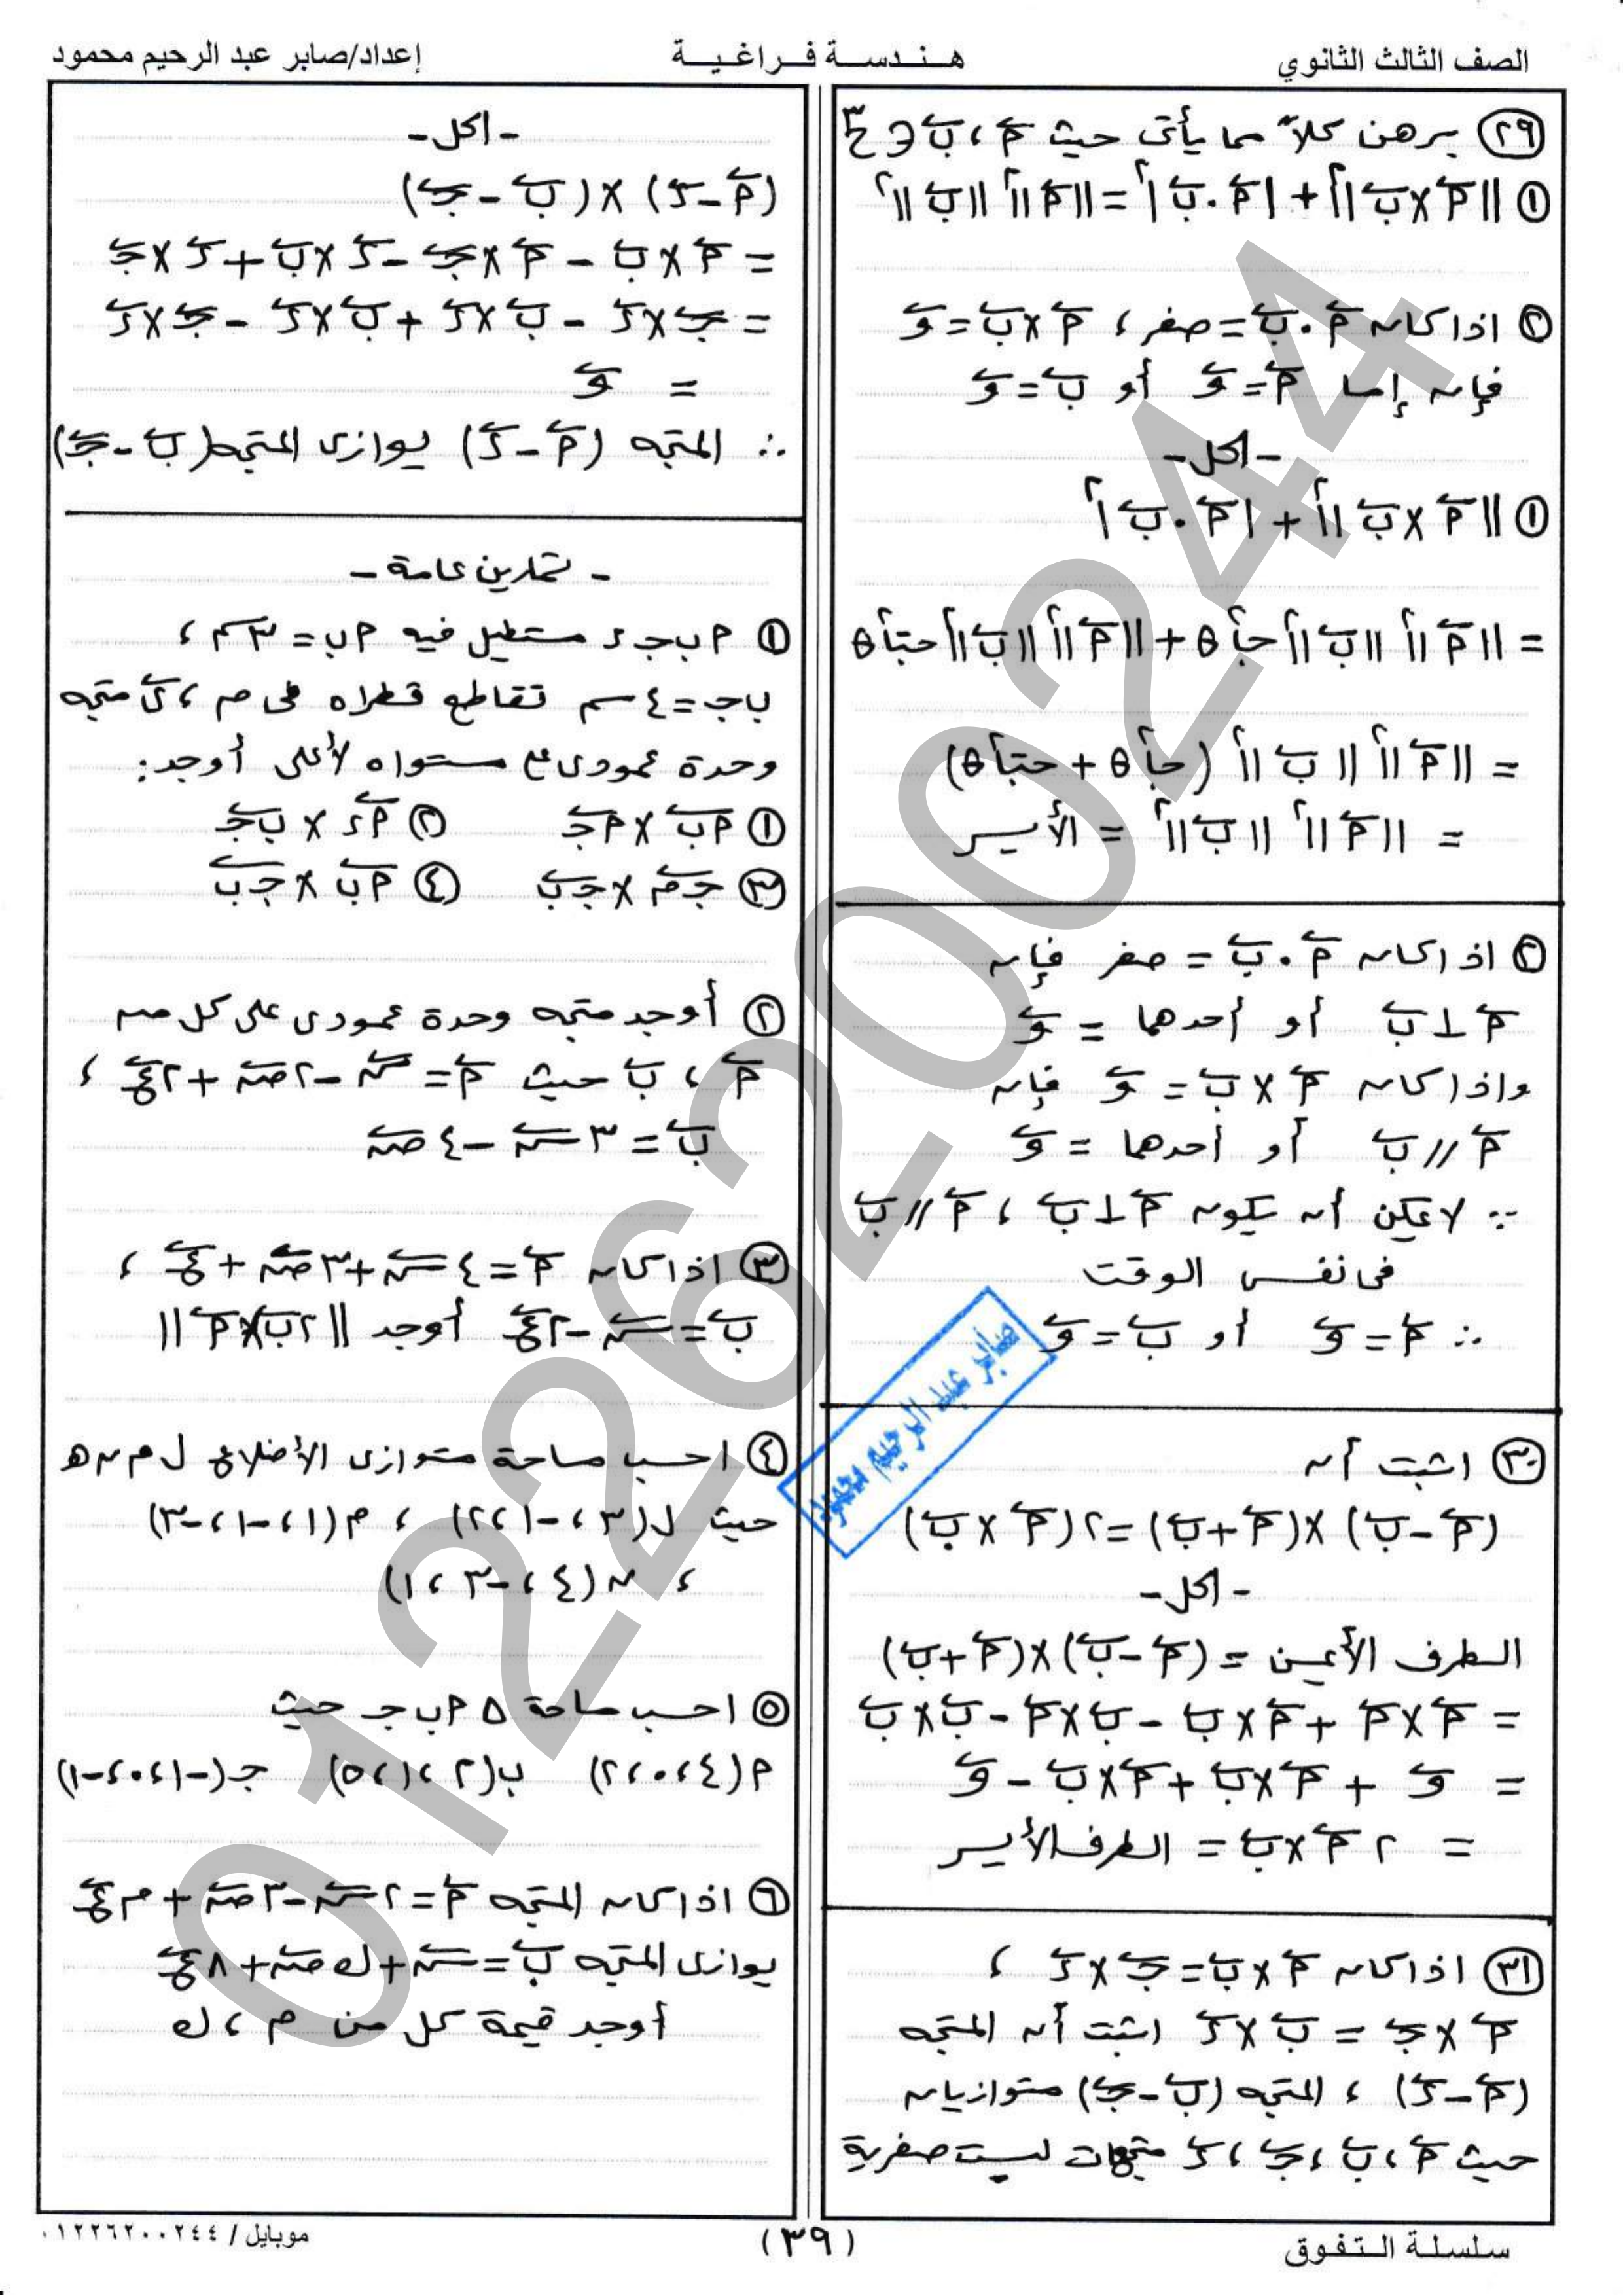 الصف الثالث الثانوي
هـنـدسـة فـراغـيـة
إعداد/صابر عبد الرحيم محمود
٢٩ برهن كلاً مما يأتى حيث أ⃗ ، ب⃗ ∈ ح٣
١ ||أ⃗ × ب⃗||٢ + |أ⃗ . ب⃗|٢ = ||أ⃗||٢ ||ب⃗||٢
٢ اذا كان أ⃗ . ب⃗ = صفر ، أ⃗ × ب⃗ = و⃗
فإن إما أ⃗ = و⃗ أو ب⃗ = و⃗
- الحل -
١ ||أ⃗ × ب⃗||٢ + |أ⃗ . ب⃗|٢
= ||أ⃗||٢ ||ب⃗||٢ جا٢ θ + ||أ⃗||٢ ||ب⃗||٢ حتا٢ θ
= ||أ⃗||٢ ||ب⃗||٢ (جا٢ θ + حتا٢ θ)
= ||أ⃗||٢ ||ب⃗||٢ = الأيسر
٢ اذا كان أ⃗ . ب⃗ = صفر فإن
أ⃗ ⊥ ب⃗ أو أحدهما = و⃗
واذا كان أ⃗ × ب⃗ = و⃗ فإن
أ⃗ // ب⃗ أو أحدهما = و⃗
∵ لا يمكن أن يكون أ⃗ ⊥ ب⃗ ، أ⃗ // ب⃗
فى نفس الوقت
∴ أ⃗ = و⃗ أو ب⃗ = و⃗
صابر عبد الرحيم محمود
٣٠ اثبت أن
(أ⃗ - ب⃗) × (أ⃗ + ب⃗) = ٢(أ⃗ × ب⃗)
- الحل -
الطرف الأيمن = (أ⃗ - ب⃗) × (أ⃗ + ب⃗)
= أ⃗ × أ⃗ + أ⃗ × ب⃗ - ب⃗ × أ⃗ - ب⃗ × ب⃗
= و⃗ + أ⃗ × ب⃗ + أ⃗ × ب⃗ - و⃗
= ٢ أ⃗ × ب⃗ = الطرف الأيسر
٣١ اذا كان أ⃗ × ب⃗ = ج⃗ × د⃗ ،
أ⃗ × ج⃗ = ب⃗ × د⃗ اثبت أن المتجه
(أ⃗ - د⃗) ، المتجه (ب⃗ - ج⃗) متوازيان
حيث أ⃗ ، ب⃗ ، ج⃗ ، د⃗ متجهات ليست صفرية
- الحل -
(أ⃗ - د⃗) × (ب⃗ - ج⃗)
= أ⃗ × ب⃗ - أ⃗ × ج⃗ - د⃗ × ب⃗ + د⃗ × ج⃗
= ج⃗ × د⃗ - ب⃗ × د⃗ + ب⃗ × د⃗ - ج⃗ × د⃗
= و⃗
∴ المتجه (أ⃗ - د⃗) يوازى المتجه (ب⃗ - ج⃗)
- تمارين عامة -
١ أ ب ج د مستطيل فيه أ ب = ٣ سم ،
ب ج = ٤ سم تقاطع قطراه فى م ، ى⃗ متجه
وحدة عمودى ع مستواه لأعلى أوجد :
١ أب⃗ × أج⃗ ٢ أد⃗ × بج⃗
٣ جم⃗ × جب⃗ ٤ أب⃗ × جب⃗
٢ أوجد متجه وحدة عمودى على كل من
أ⃗ ، ب⃗ حيث أ⃗ = س⃗ - ٢ص⃗ + ٢ع⃗ ،
ب⃗ = ٣س⃗ - ٤ص⃗
٣ اذا كان أ⃗ = ٤س⃗ + ٣ص⃗ + ع⃗ ،
ب⃗ = س⃗ - ٢ع⃗ أوجد ||٢ب⃗ × أ⃗||
٤ احسب مساحة متوازى الأضلاع ل م ن هـ
حيث ل(٣ ، -١ ، ٢) ، م(١ ، -١ ، -٣)
، ن(٤ ، -٣ ، ١)
٥ احسب مساحة Δ أ ب ج حيث
أ(٤ ، ٠ ، ٢) ب(٢ ، ١ ، ٥) ج(-١ ، ٠ ، -١)
٦ اذا كان المتجه أ⃗ = ٢س⃗ - ٣ص⃗ + م ع⃗
يوازى المتجه ب⃗ = س⃗ + ك ص⃗ + ٨ع⃗
أوجد قيمة كل من م ، ك
01226200244
سلسلة التفوق
(٣٩)
موبايل / ٠١٢٢٦٢٠٠٢٤٤